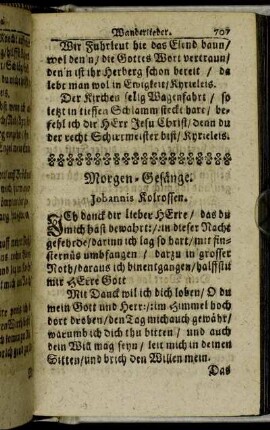 Wanderlieder. 707
Wir Fuhrleut hie das Elend baun/
wol den'n/ die Gottes Wort vertraun/
den'n ist ihr Herberg schon bereit / da
lebt man wol in Ewigkeit/Kyrieleis.
Der Kirchen selig Wagenfahrt / so
letzt in tieffen Schlamm steckt hart/ be-
fehl ich dir HErr Jesu Christ/ denn du
der recht Schirrmeister bist/ Kyrieleis.
Morgen-Gesänge.
Johannis Kolrossen.
ICh danck dir lieber HErre/ das du
mich hast bewahrt:/: in dieser Nacht
gefehrde/darinn ich lag so hart/mit fin-
sternüs umbfangen / darzu in grosser
Noth/daraus ich bin entgangen/halffst du
mir HErre Gott
Mit Danck wil ich dich loben/ O du
mein Gott und Herr:/: im Himmel hoch
dort droben/den Tag mich auch gewähr/
warumb ich dich thu bitten / und auch
dein Will mag seyn/ leit mich in deinen
Sitten/und brich den Willen mein.
Das